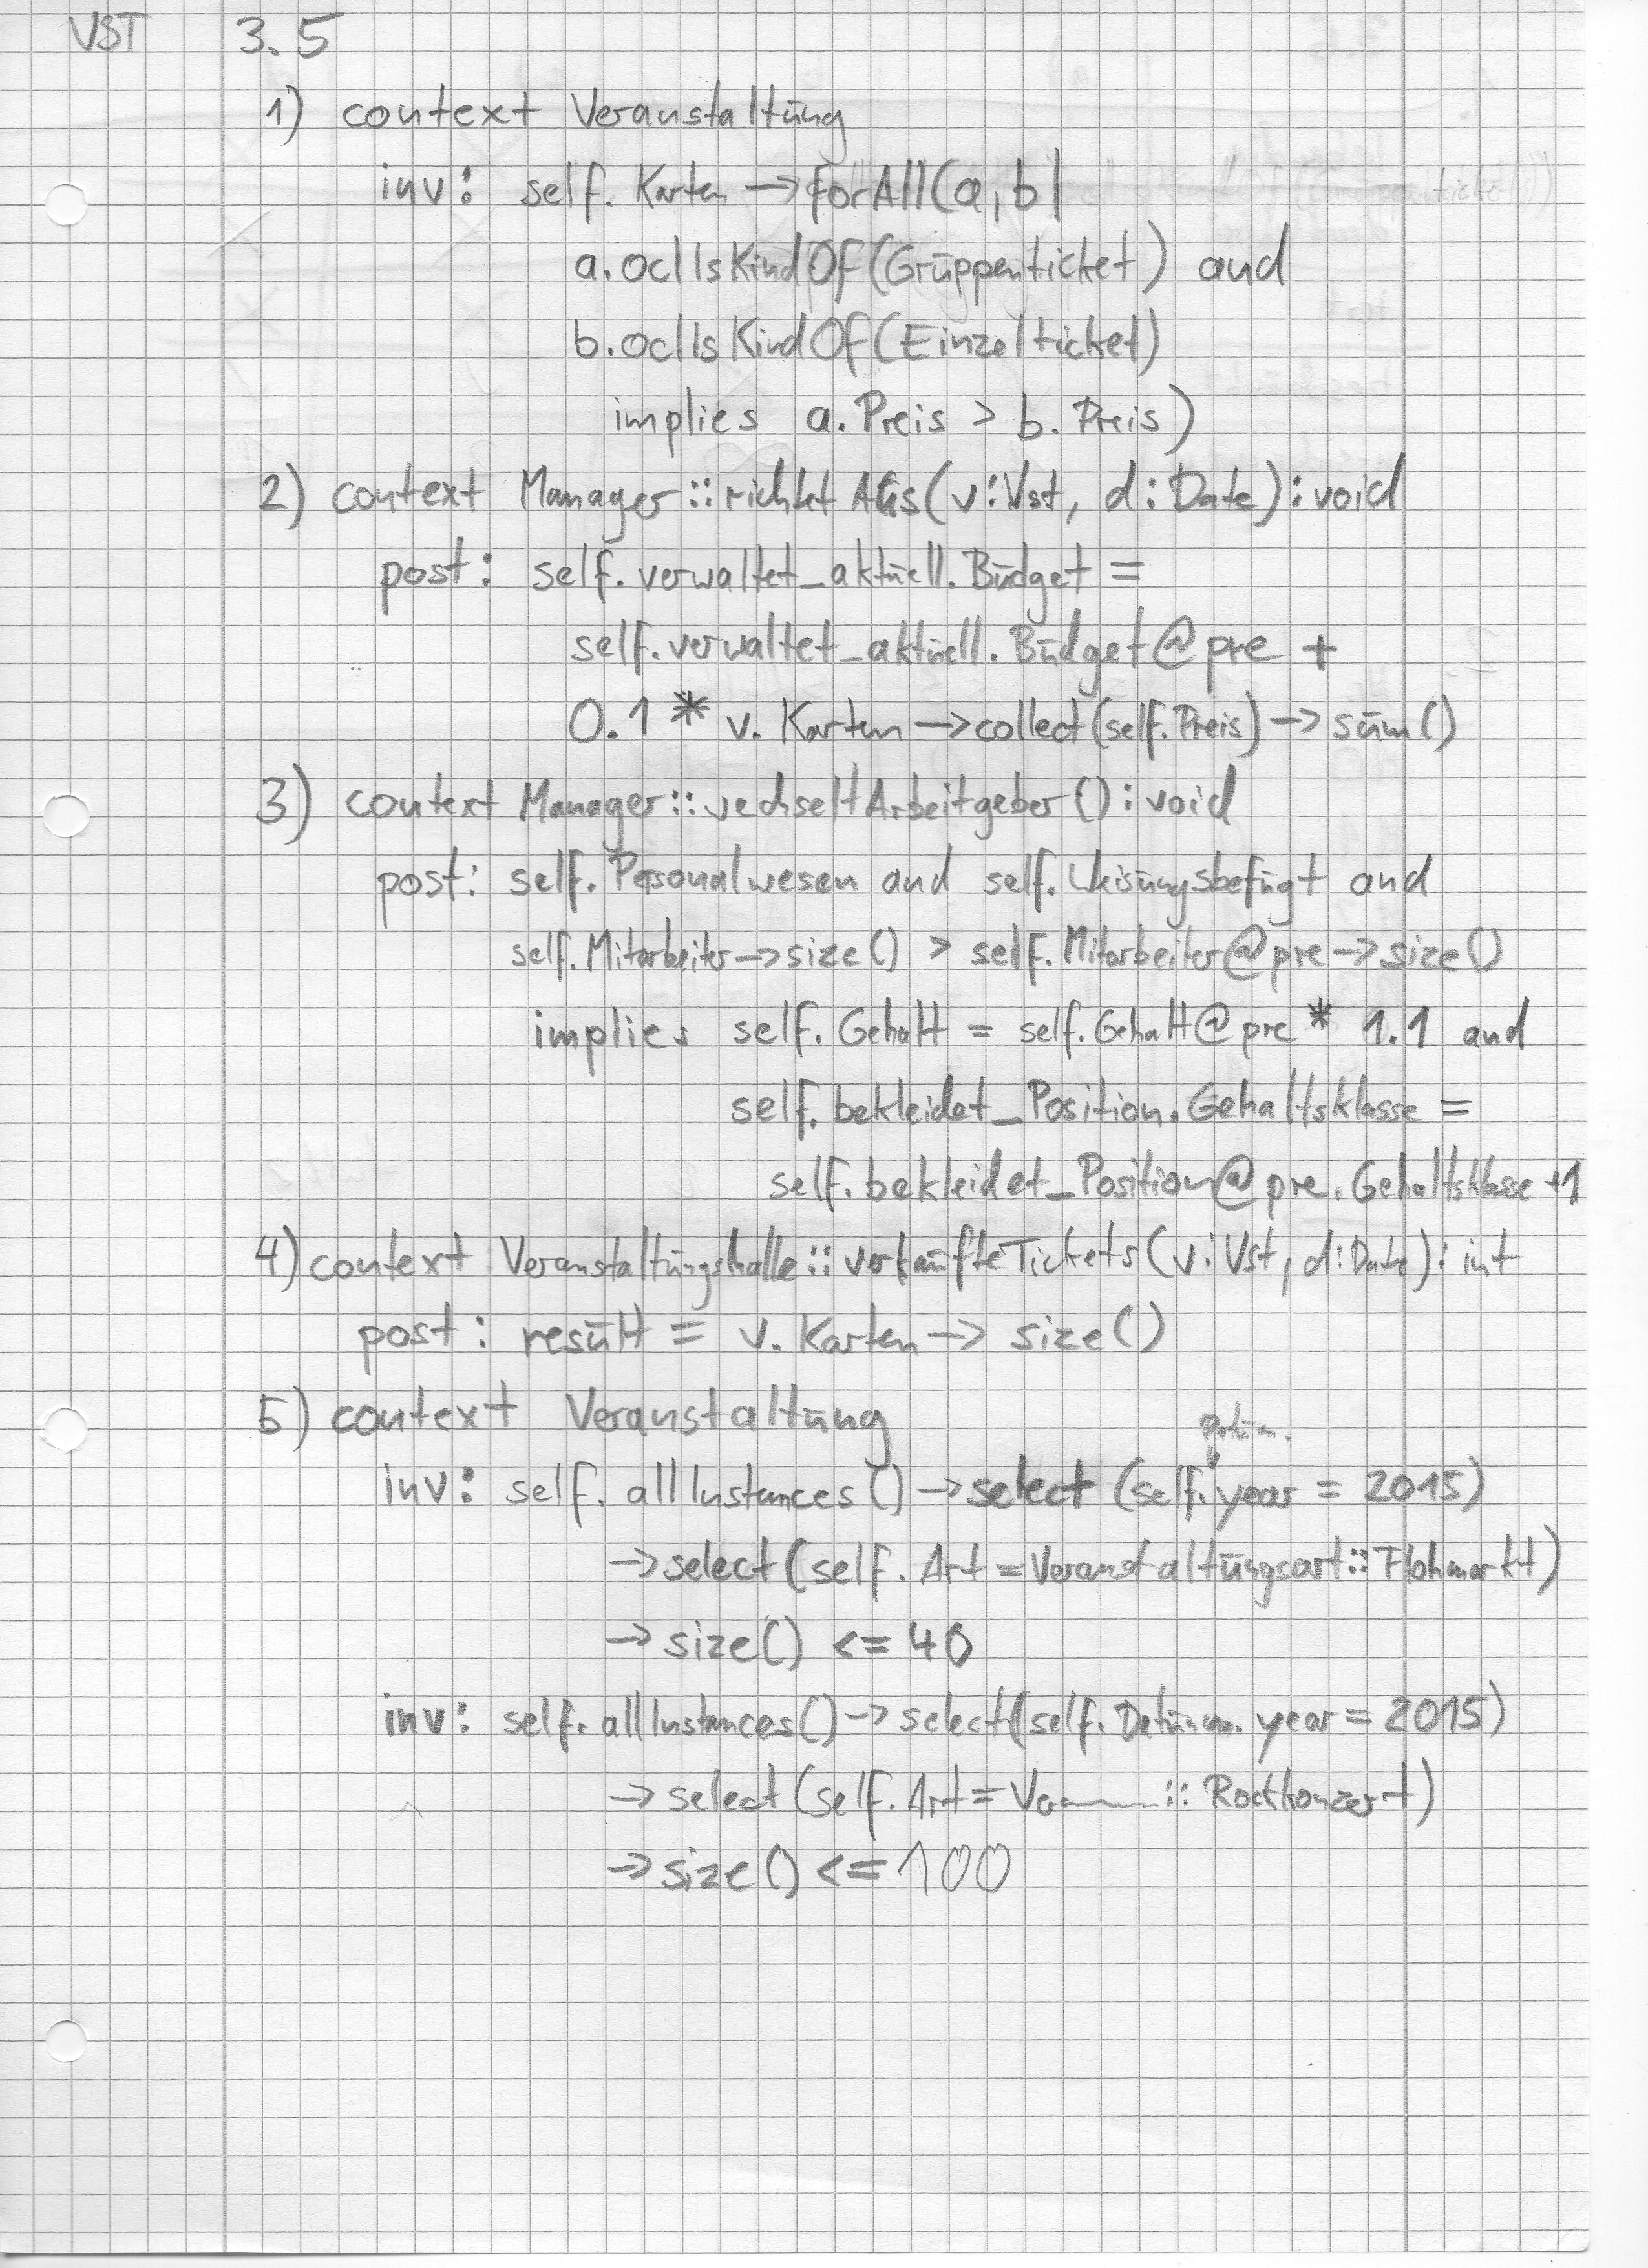 VST 3.5
1) context Veranstaltung
inv: self.Karten -> forAll(a,b|
a.oclIsKindOf(Gruppenticket) and
b.oclIsKindOf(Einzelticket)
implies a.Preis > b.Preis)
2) context Manager::richtetAus(v:Vst, d:Date):void
post: self.verwaltet_aktuell.Budget =
self.verwaltet_aktuell.Budget@pre +
0.1 * v.Karten -> collect(self.Preis) -> sum()
3) context Manager::wechseltArbeitgeber():void
post: self.Personalwesen and self.Weisungsbefugt and
self.Mitarbeiter -> size() > self.Mitarbeiter@pre -> size()
implies self.Gehalt = self.Gehalt@pre * 1.1 and
self.bekleidet_Position.Gehaltsklasse =
self.bekleidet_Position@pre.Gehaltsklasse +1
4) context Veranstaltungshalle::verkaufteTickets(v:Vst, d:Date): int
post: result = v.Karten -> size()
5) context Veranstaltung
Datum.
inv: self.allInstances() -> select (self.year = 2015)
-> select(self.Art = Veranstaltungsart::Flohmarkt)
-> size() <= 40
inv: self.allInstances() -> select(self.Datum.year = 2015)
-> select(self.Art = Ve :: Rockkonzert)
-> size() <= 100